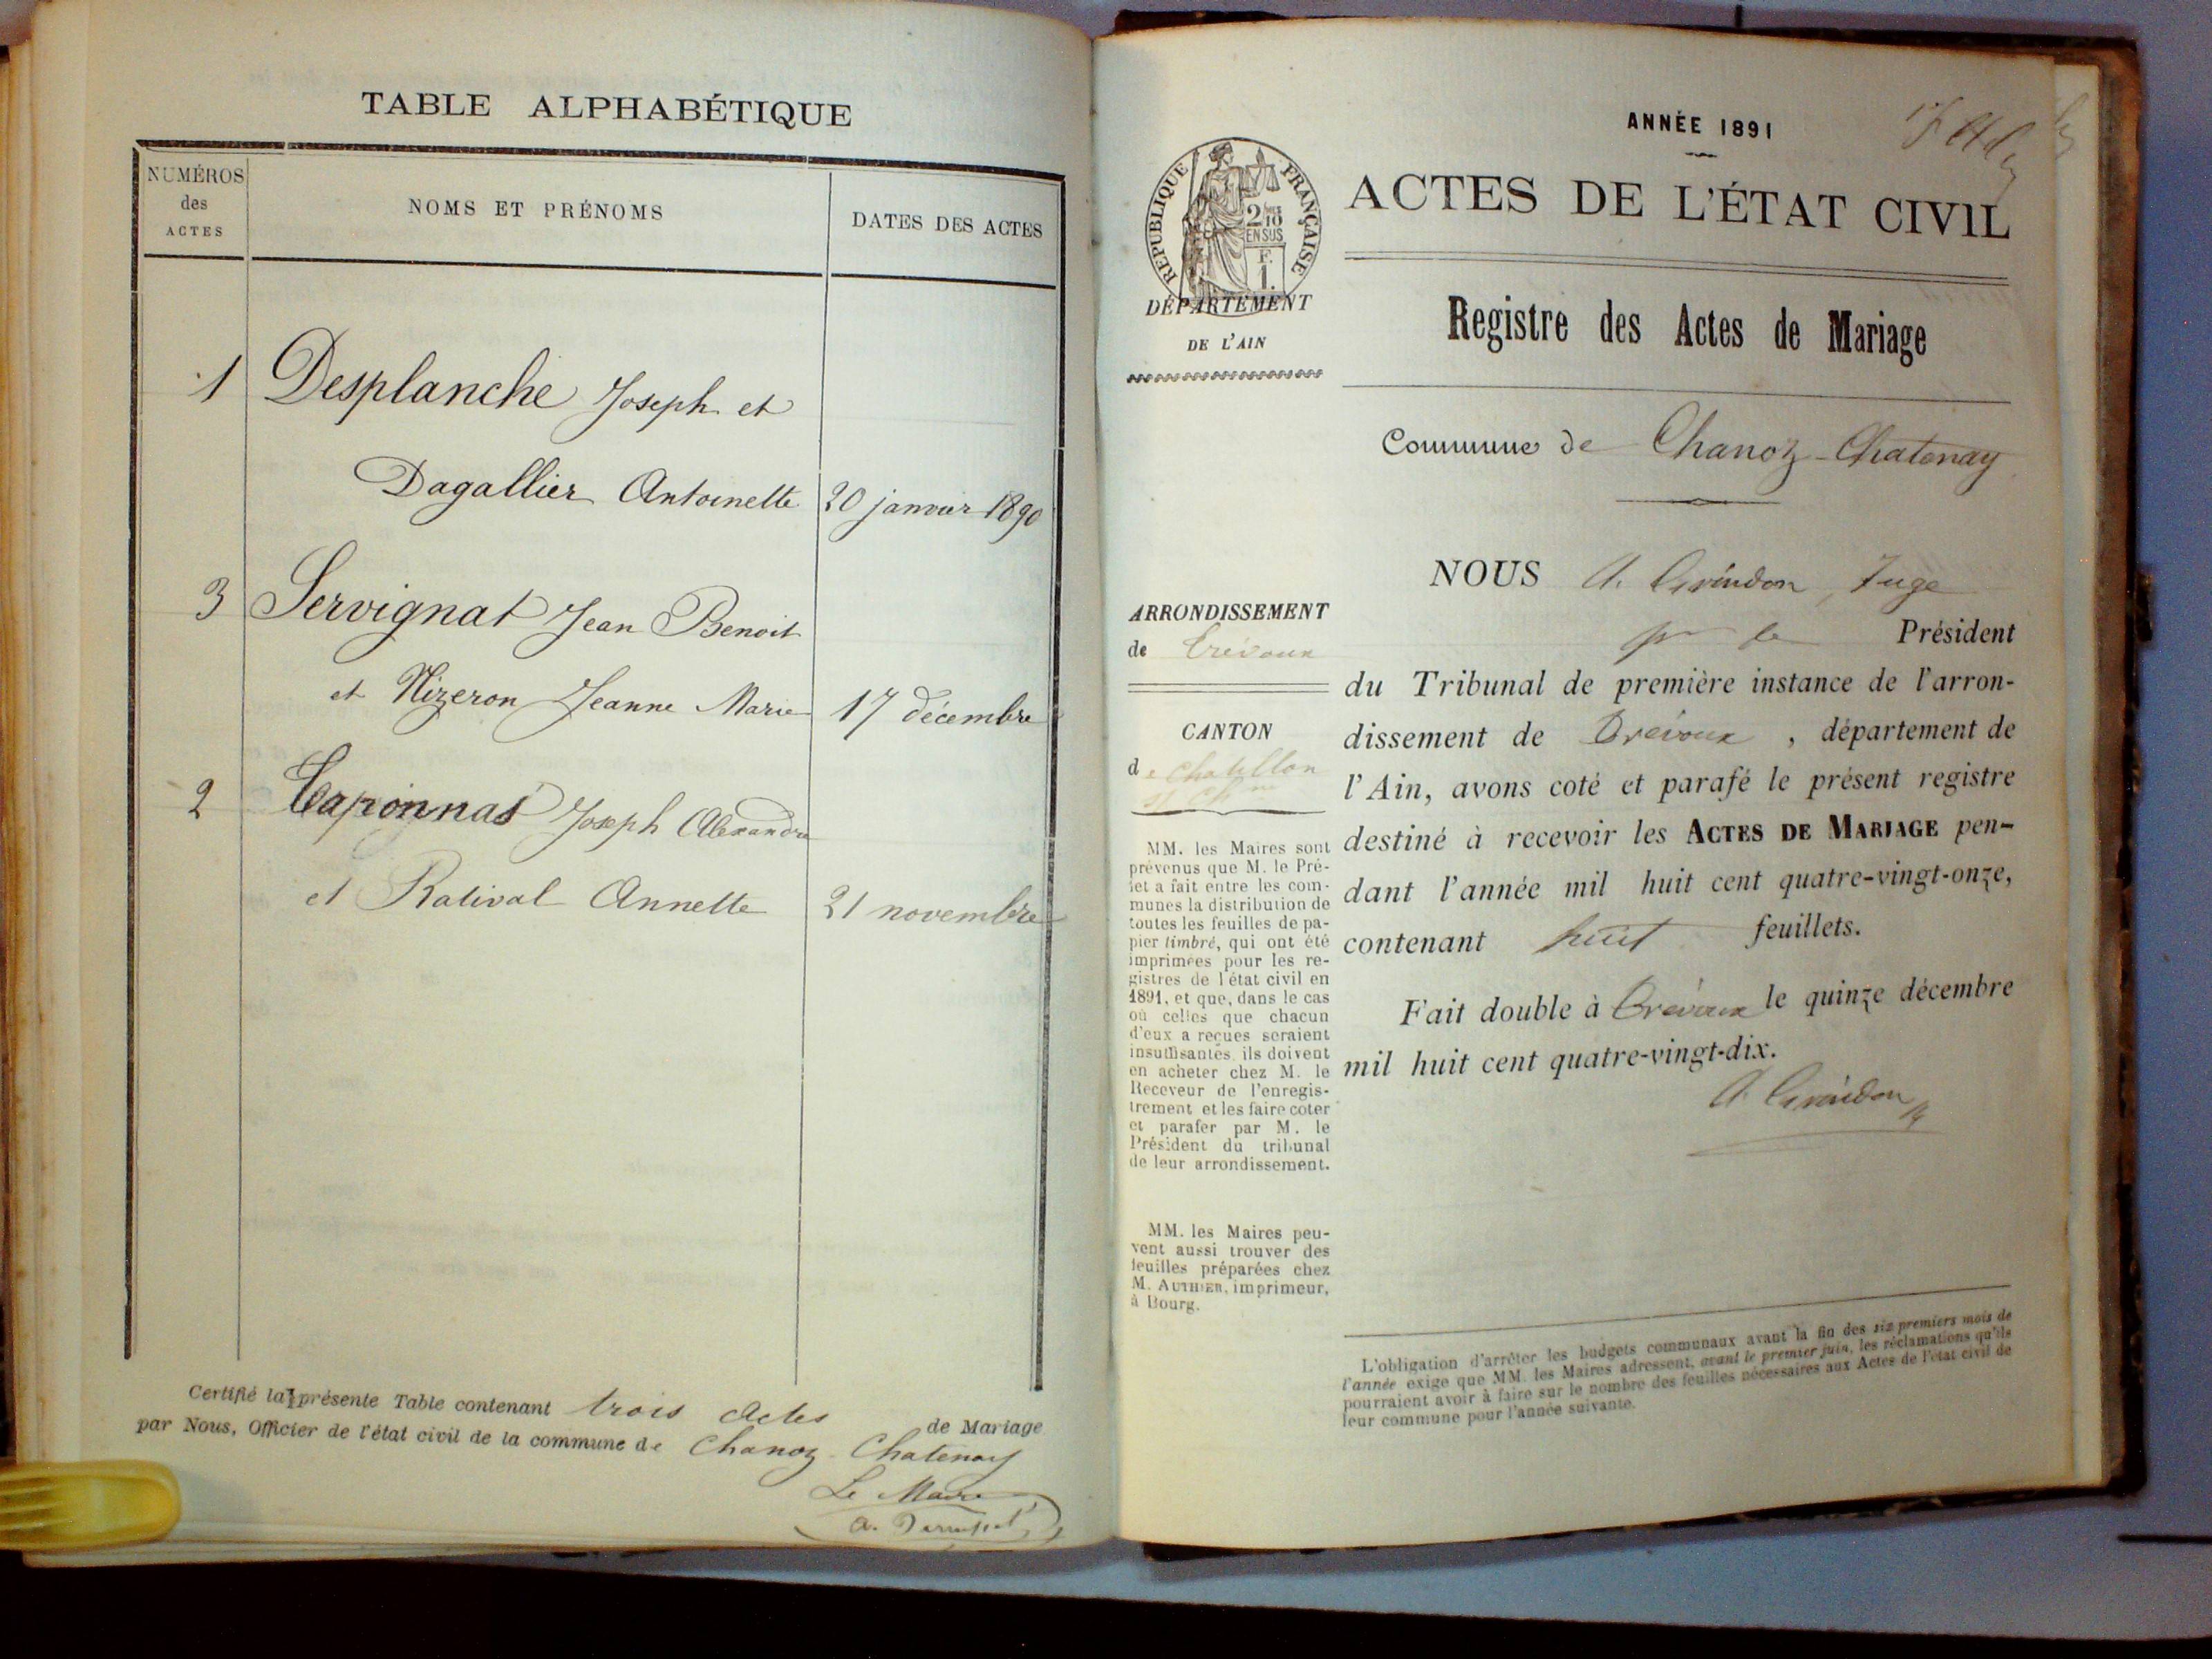 TABLE ALPHABÉTIQUE
NUMÉROS
des
ACTES
NOMS ET PRÉNOMS
DATES DES ACTES
1 Desplanche Joseph et
Dagallier Antoinette 20 janvier 1890
3 Servignat Jean Benoit
et Nizeron Jeanne Marie 17 décembre
2 Taponnas Joseph Alexandre
et Rativat Annette 21 novembre
Certifié la présente Table contenant trois actes de Mariage
par Nous, Officier de l'état civil de la commune de Chanoz-Chatenay
Le Maire
ANNÉE 1891
ACTES DE L'ÉTAT CIVIL
RÉPUBLIQUE FRANÇAISE
2/10
EN SUS
F.
1.
DÉPARTEMENT
DE L'AIN
Registre des Actes de Mariage
Commune de Chanoz-Chatenay
ARRONDISSEMENT
de Trévoux
CANTON
de Chatillon
MM. les Maires sont
prévenus que M. le Pré-
fet a fait entre les com-
munes la distribution de
toutes les feuilles de pa-
pier timbré, qui ont été
imprimées pour les re-
gistres de l'état civil en
1891, et que, dans le cas
où celles que chacun
d'eux a reçues seraient
insuffisantes, ils doivent
en acheter chez M. le
Receveur de l'enregis-
trement et les faire coter
et parafer par M. le
Président du tribunal
de leur arrondissement.
MM. les Maires peu-
vent aussi trouver des
feuilles préparées chez
M. AUTHIER, imprimeur,
à Bourg.
NOUS A. Grindon, Juge
pr le Président
du Tribunal de première instance de l'arron-
dissement de Trévoux, département de
l'Ain, avons coté et parafé le présent registre
destiné à recevoir les ACTES DE MARIAGE pen-
dant l'année mil huit cent quatre-vingt-onze,
contenant huit feuillets.
Fait double à Trévoux le quinze décembre
mil huit cent quatre-vingt-dix.
A. Grindon
L'obligation d'arrêter les budgets communaux avant la fin des six premiers mois de
l'année exige que MM. les Maires adressent, avant le premier juin, les réclamations qu'ils
pourraient avoir à faire sur le nombre des feuilles nécessaires aux Actes de l'état civil de
leur commune pour l'année suivante.